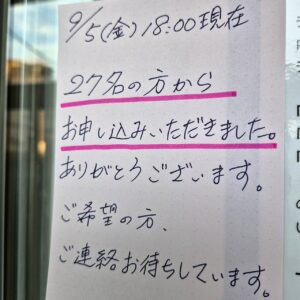 9/5(金)18:00現在
27名の方から
お申し込みいただきました。
ありがとうございます。
ご希望の方、
ご連絡お待ちしています。